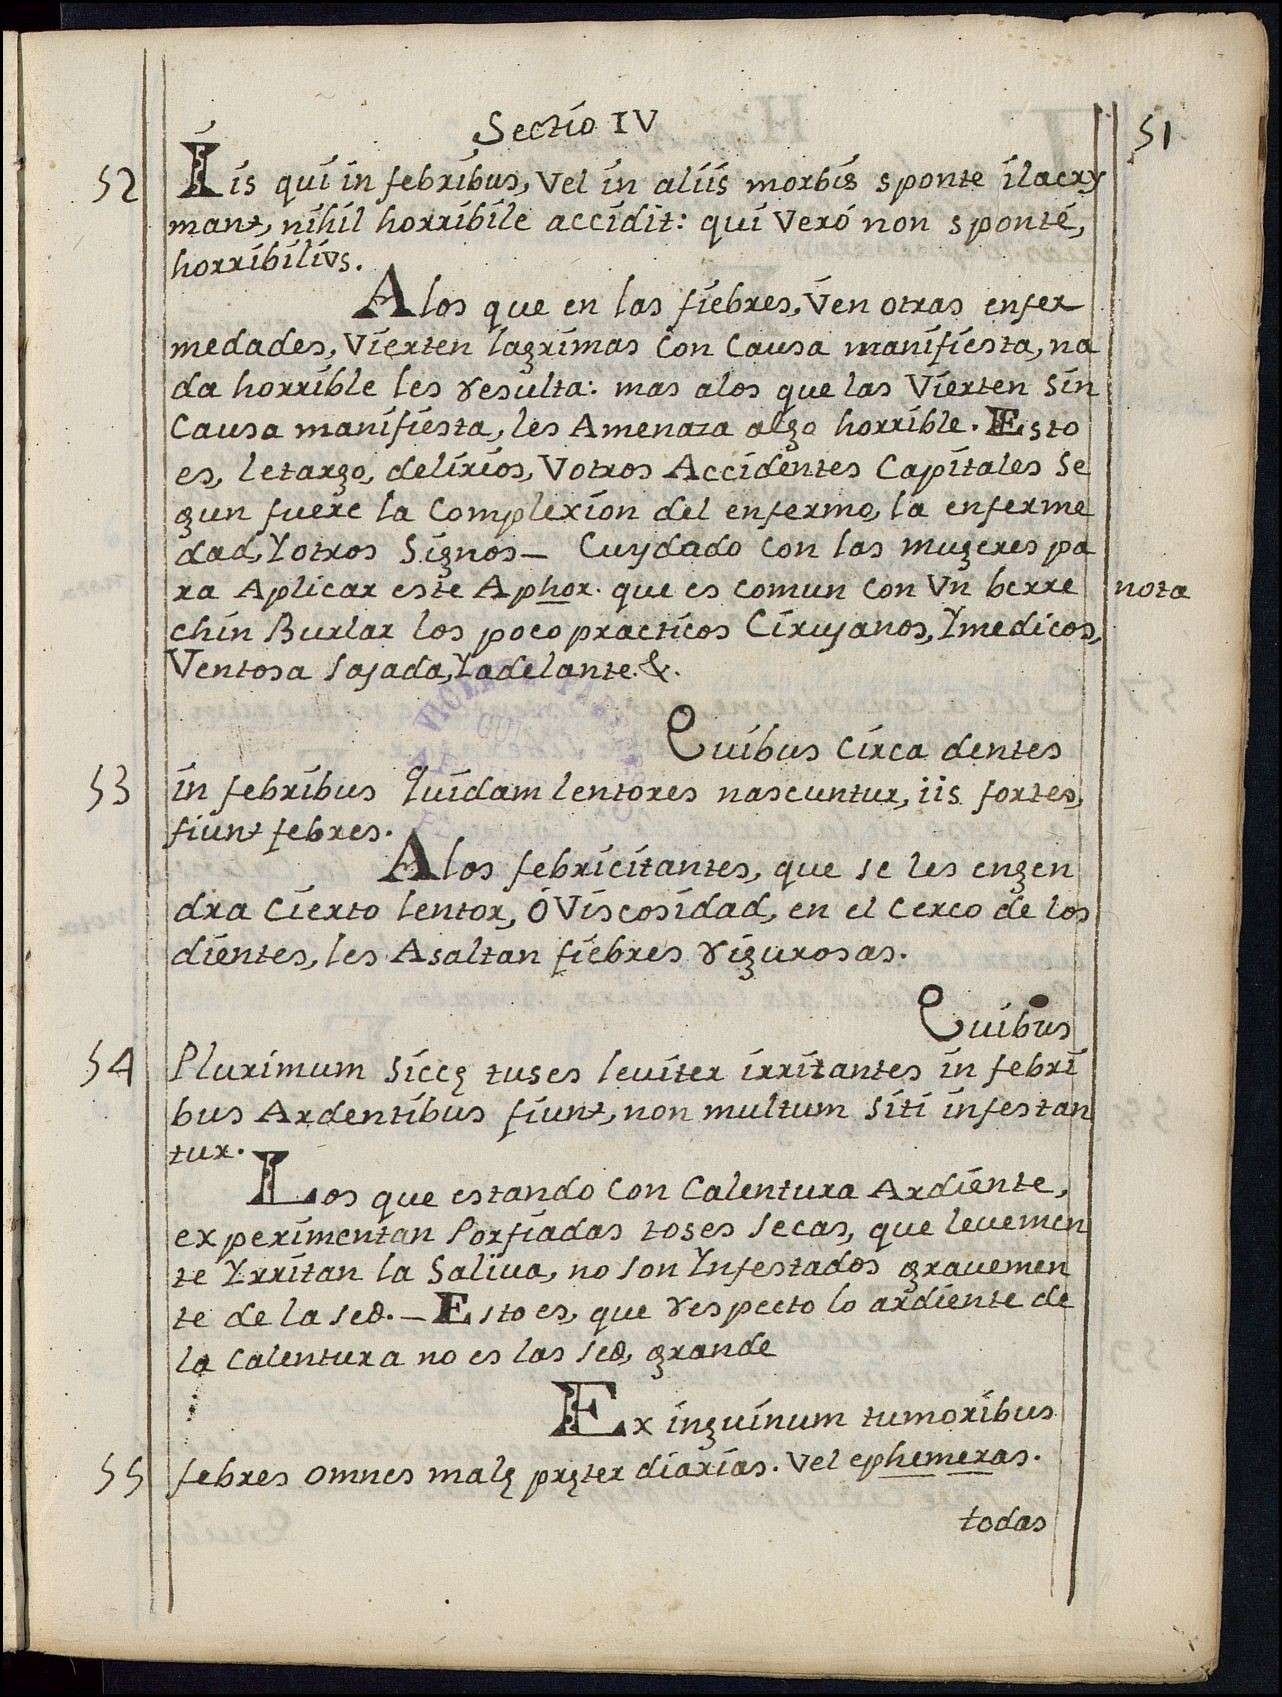 Sectio IV
51
52 Iis qui in febribus, Vel in aliis morbis sponte ilacry
mant, nihil horribile accidit: qui Veró non sponté,
horribiliùs.
A los que en las fiebres, Ven otras enfer
medades, Vierten lagrimas Con Causa manifiesta, na
da horrible les resulta: mas alos que las Vierten Sin
Causa manifiesta, les Amenaza algo horrible. Esto
es, letargo, delirios, Votros Accidentes Capitales Se
gun fuere la Complexion del enfermo, la enferme
dad, Yotros Signos— Cuydado Con las mugeres pa
ra Aplicar este Aphor. que es comun Con Vn berre
nota
chin Burlar los poco practicos Cirujanos, Ymedicos,
Ventosa Sajada, Yadelante. &.
Quibus Circa dentes
53 in febribus quidam lentores nascuntur, iis fortes,
fiunt febres.
A los febricitantes, que se les engen
dra Cierto lentor, ó Viscosidad, en el Cerco de los
dientes, les Asaltan fiebres rigurosas.
Quibus
54 Plurimum Siccę tuses leviter irritantes in febri
bus Ardentibus fiunt, non multum Siti infestan
tur.
Los que estando Con Calentura Ardiente,
experimentan Porfiadas toses Secas, que levemen
te Yrritan la Saliua, no son Ynfestados grauemen
te de la sed.— Esto es, que respecto lo ardiente de
la Calentura no es las sed, grande
Ex inguinum tumoribus
55 febres omnes malę pręter diarias. Vel ephemeras.
todas